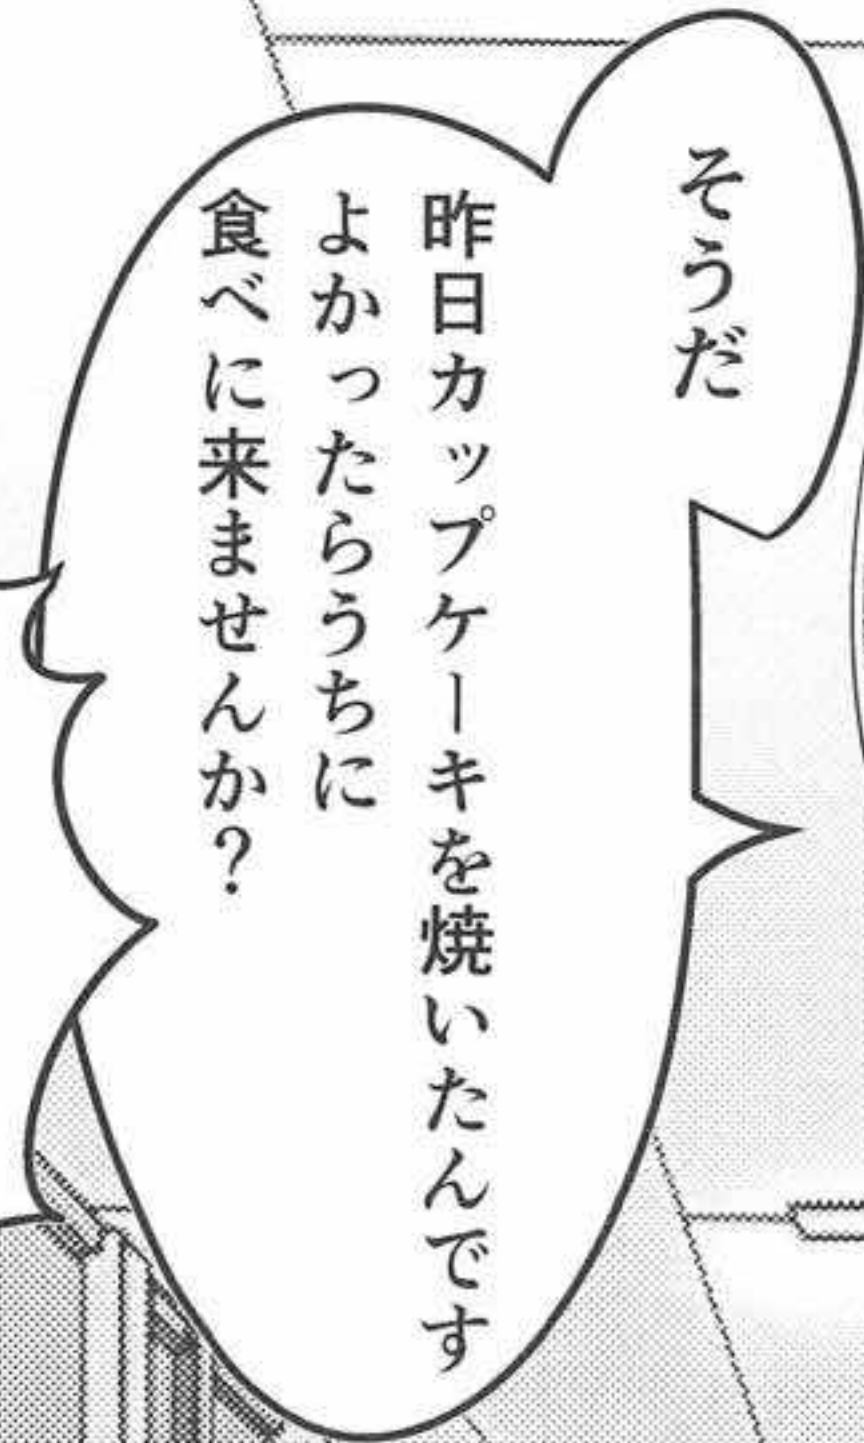 そうだ
昨日カップケーキを焼いたんです
よかったらうちに
食べに来ませんか？